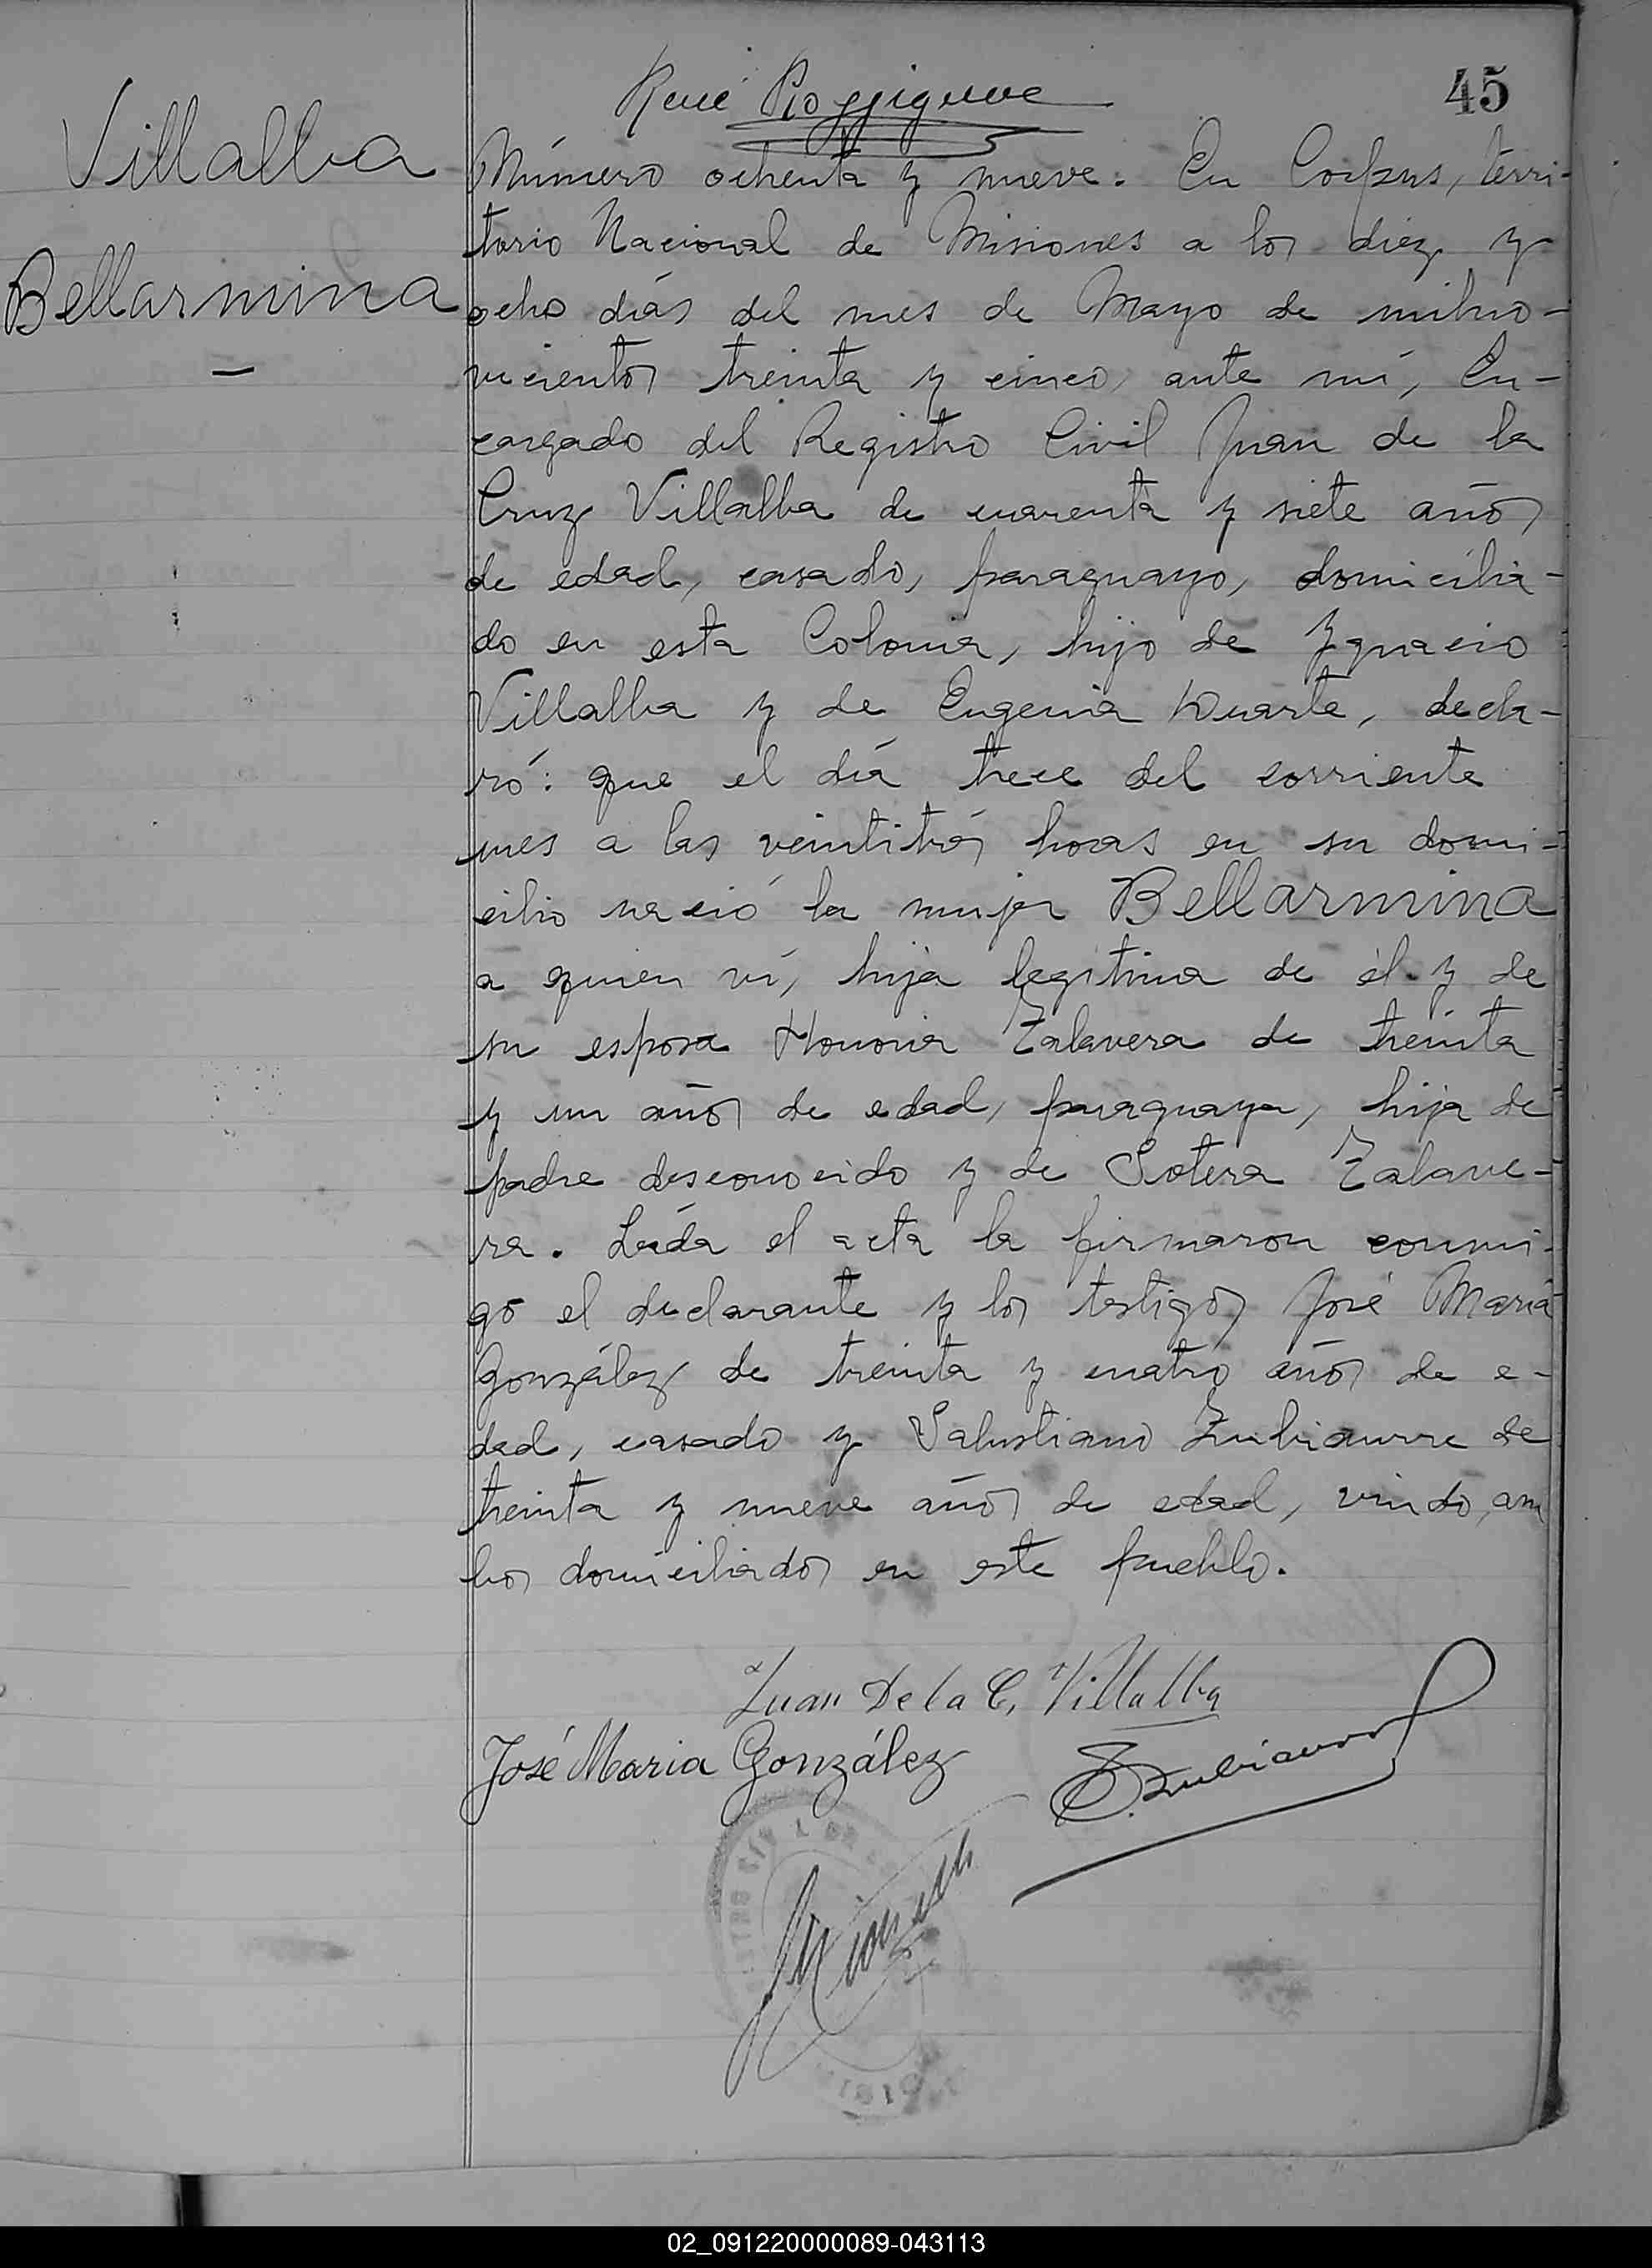 45
René
Villalba
Bellarmina
Número ochenta y nueve. En Corpus, terri-
torio Nacional de Misiones a los diez y
ocho días del mes de Mayo de milno-
vecientos treinta y cinco, ante mí, En-
cargado del Registro Civil Juan de la
Cruz Villalba de cuarenta y siete años
de edad, casado, paraguayo, domicilia-
do en esta Colonia, hijo de Ygnacio
Villalba y de Eugenia Duarte, decla-
ró: que el día trece del corriente
mes a las veintitrés horas en su domi-
cilio nació la mujer Bellarmina
a quien ví, hija legítima de él y de
su esposa Honoria Zalavera de treinta
y un años de edad, paraguaya, hija de
padre desconocido y de Sotera Zalave-
ra. Leída el acta la firmaron conmi-
go el declarante y los testigos José María
González de treinta y cuatro años de e-
dad, casado y Salustiano Zubiaurre de
treinta y nueve años de edad, viudo, am
bos domiciliados en este pueblo.
Juan De la C, Villalba
José Maria González
S. Zubiaurre
02_091220000089-043113